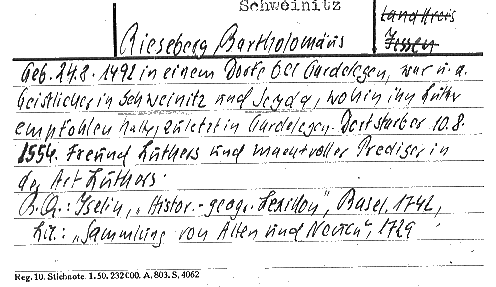 Schweinitz
Landkreis
Jessen
Rieseberg Bartholomäus
Geb. 24.8.1492 in einem Dorfe bei Gardelegen, war u. a.
Geistlicher in Schweinitz und Seyda, wohin ihn Luther
empfohlen hatte, zuletzt in Gardelegen. Dort starb er 10.8.
1554. Freund Luthers und machtvoller Prediger in
der Art Luthers.
B.Q.: Iselin, „Histor.-geogr. Lexikon", Basel, 1742,
Lit.: „Sammlung von Alten und Neuen", 1729
Reg. 10. Stichnote. 1. 50. 232 000. A. 803. S. 4062